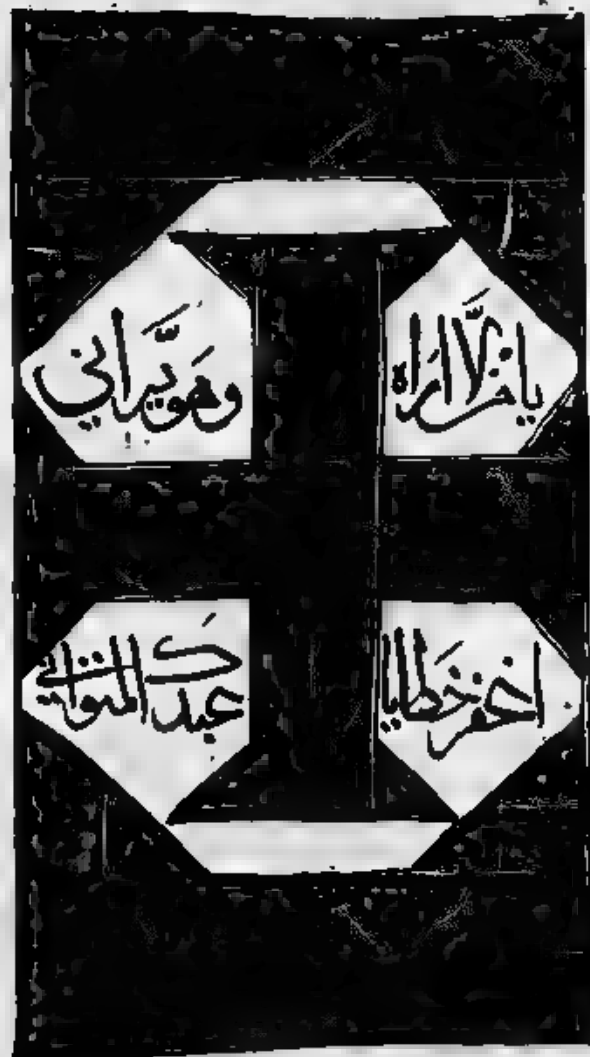 يا من لا اراه وهو يراني
اغفر خطايا عبدك المتواني